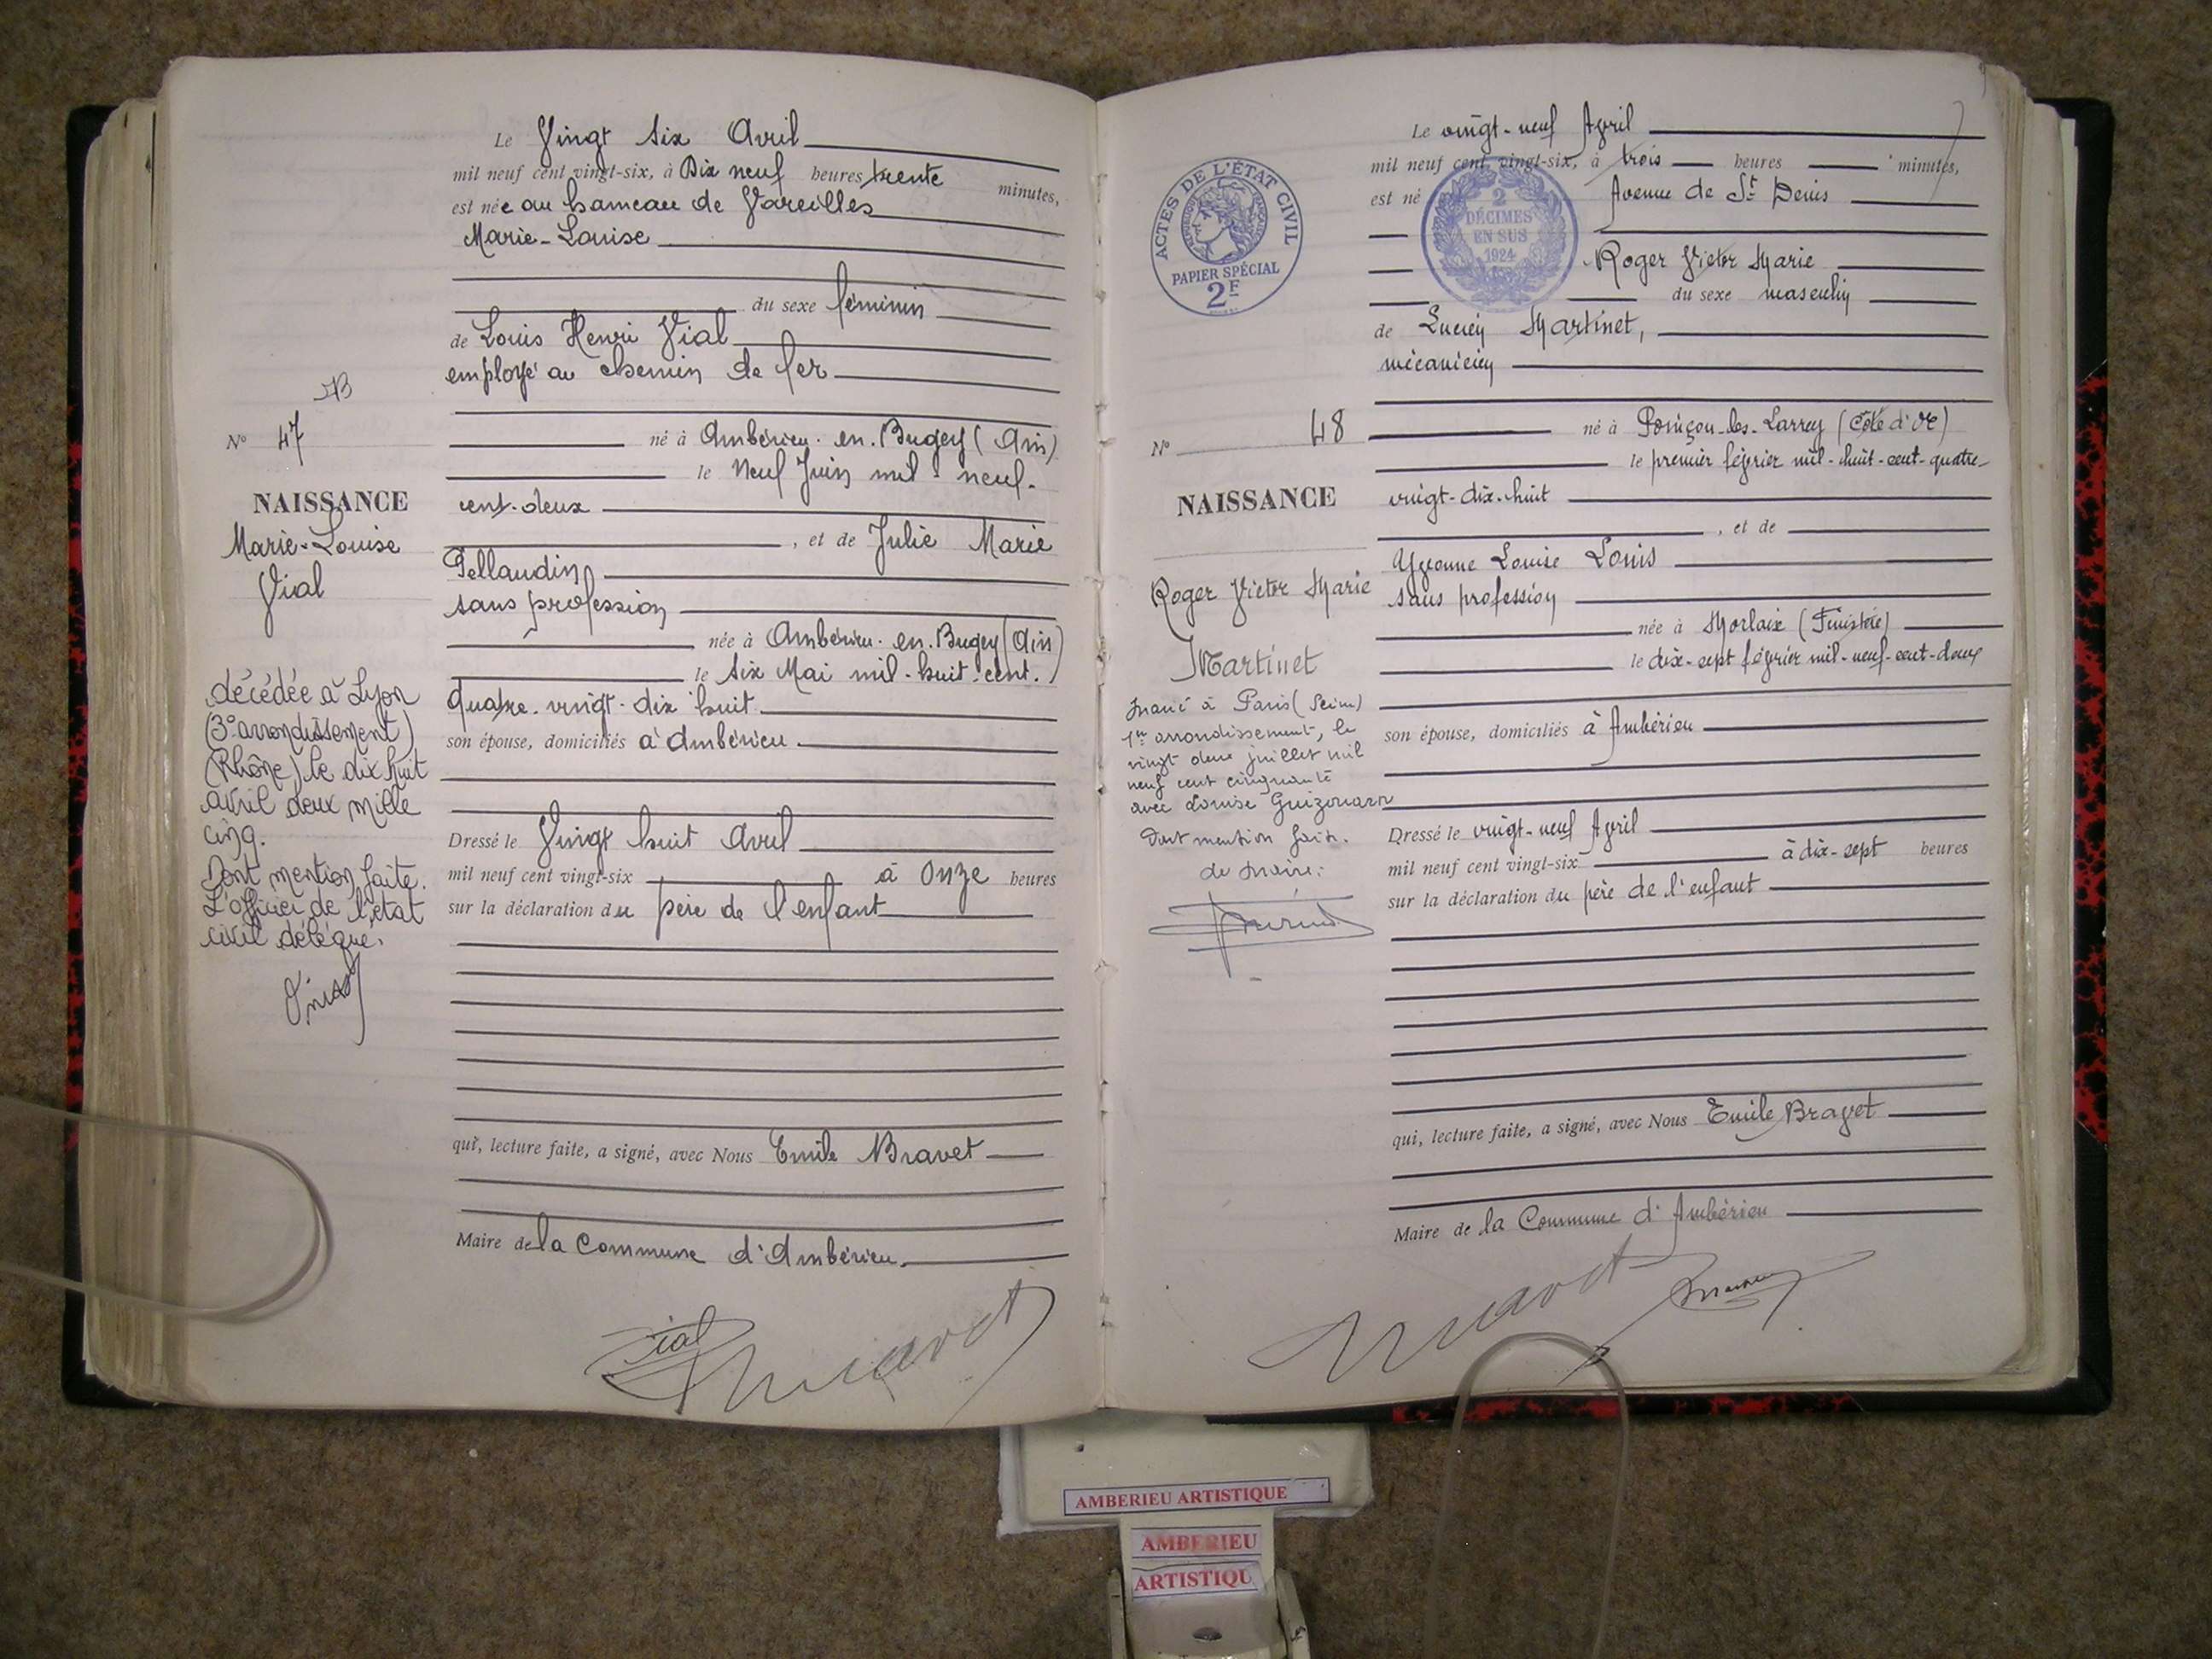 Le Vingt six Avril
mil neuf cent vingt-six, à Dix neuf heures trente minutes,
est née au hameau de Vareilles
Marie-Louise
du sexe féminin
de Louis Henri Vial
employé au chemin de fer
N° 47
né à Ambérieu-en-Bugey (Ain)
le Neuf Juin mil-neuf-
NAISSANCE
cent-deux
Marie-Louise
Vial
, et de Julie Marie
Pellaudin
sans profession
née à Ambérieu-en-Bugey (Ain)
le six Mai mil-huit-cent-
quatre-vingt-dix huit
son épouse, domiciliés à Ambérieu
décédée à Lyon
(3e arrondissement)
(Rhône) le dix huit
avril deux mille
cinq.
Dont mention faite.
L'officier de l'état
civil délégué.
Dressé le Vingt huit Avril
mil neuf cent vingt-six à onze heures
sur la déclaration du père de l'enfant
qui, lecture faite, a signé, avec Nous Emile Bravet
Maire de la Commune d'Ambérieu
Vial
Le vingt-neuf Avril
mil neuf cent vingt-six, à trois heures minutes,
est né Avenue de St Denis
ACTES DE L'ÉTAT CIVIL
PAPIER SPÉCIAL
2F
2
DÉCIMES
EN SUS
1924
Roger Victor Marie
du sexe masculin
de Lucien Martinet,
mécanicien
N° 48
né à Poinçon-les-Larrey (Côte d'Or)
le premier février mil-huit-cent-quatre-
NAISSANCE
vingt-dix-huit
, et de
Yvonne Louise Louis
Roger Victor Marie
Martinet
sans profession
née à Morlaix (Finistère)
le dix-sept février mil-neuf-cent-deux
son épouse, domiciliés à Ambérieu
Marié à Paris (Seine)
1er arrondissement, le
vingt deux juillet mil
neuf cent cinquante
avec Louise Guizouarn
Dont mention faite.
Le Maire:
Dressé le vingt-neuf Avril
mil neuf cent vingt-six à dix-sept heures
sur la déclaration du père de l'enfant
qui, lecture faite, a signé, avec Nous Emile Bravet
Maire de la Commune d'Ambérieu
AMBERIEU ARTISTIQUE
AMBERIEU
ARTISTIQU